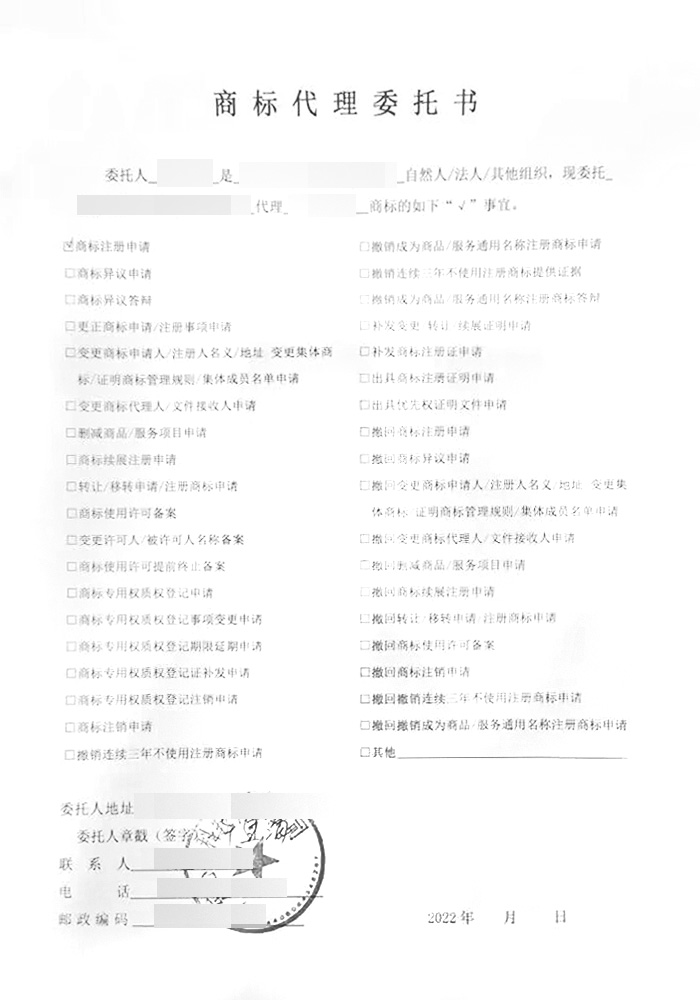 商标代理委托书
委托人 是 自然人/法人/其他组织，现委托
代理 商标的如下“√”事宜。
☑商标注册申请
□商标异议申请
□商标异议答辩
□更正商标申请/注册事项申请
□变更商标申请人/注册人名义/地址 变更集体商
标/证明商标管理规则/集体成员名单申请
□变更商标代理人/文件接收人申请
□删减商品/服务项目申请
□商标续展注册申请
□转让/移转申请/注册商标申请
□商标使用许可备案
□变更许可人/被许可人名称备案
□商标使用许可提前终止备案
□商标专用权质权登记申请
□商标专用权质权登记事项变更申请
□商标专用权质权登记期限延期申请
□商标专用权质权登记证补发申请
□商标专用权质权登记注销申请
□商标注销申请
□撤销连续三年不使用注册商标申请
□撤销成为商品/服务通用名称注册商标申请
□撤销连续三年不使用注册商标提供证据
□撤销成为商品/服务通用名称注册商标答辩
□补发变更 转让 续展证明申请
□补发商标注册证申请
□出具商标注册证明申请
□出具优先权证明文件申请
□撤回商标注册申请
□撤回商标异议申请
□撤回变更商标申请人/注册人名义/地址 变更集
体商标 证明商标管理规则/集体成员名单申请
□撤回变更商标代理人/文件接收人申请
□撤回删减商品/服务项目申请
□撤回商标续展注册申请
□撤回转让/移转申请/注册商标申请
□撤回商标使用许可备案
□撤回商标注销申请
□撤回撤销连续三年不使用注册商标申请
□撤回撤销成为商品/服务通用名称注册商标申请
□其他
委托人地址
委托人章戳（签字）
联系人
电话
邮政编码
2022年 月 日